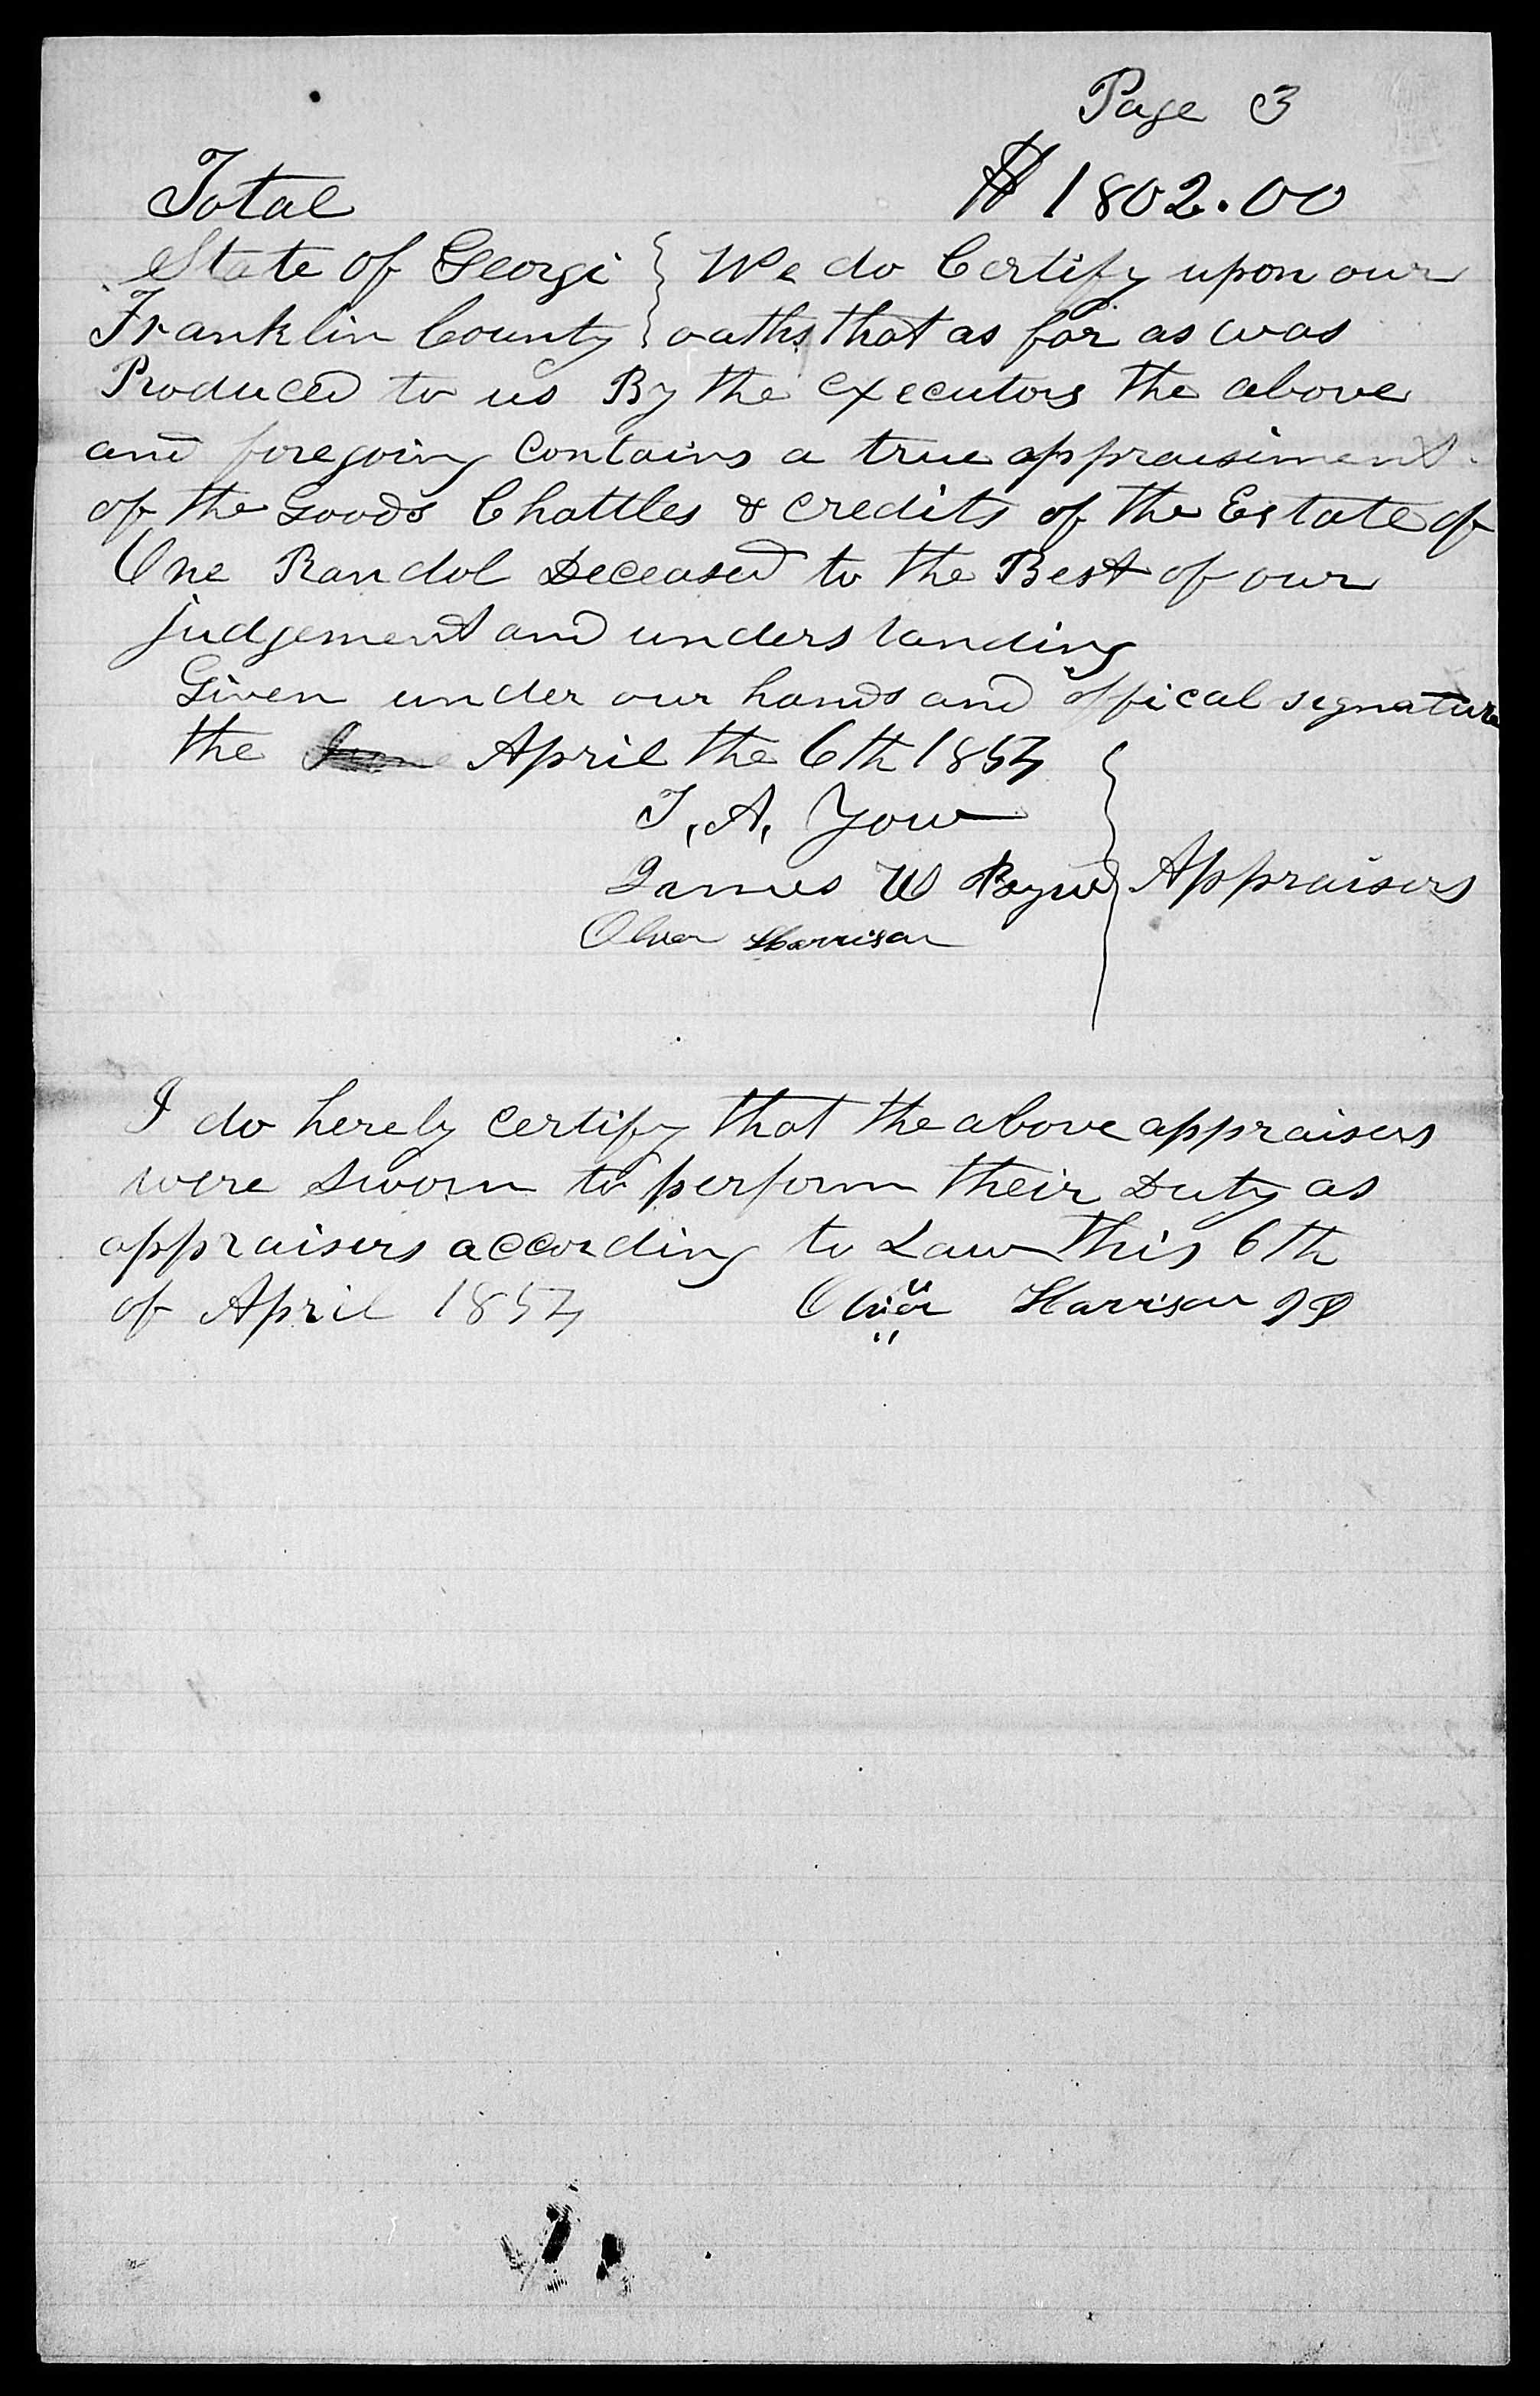 Page 3
Total $1802.00
State of Georgi } We do Certify upon our
Franklin County } oaths that as far as was
Produced to us By the executors the above
and foregoing contains a true appraisiment
of the Goods Chattles & credits of the Estate of
One Randol Deceased to the Best of our
judgement and understanding
Given under our hands and offical signature
the April the 6th 1854
T. A. Yow
James W Payne } Appraisers
Oliver Harrison
I do herely certify that the above appraisers
were sworn to perform their Duty as
appraisers according to Law this 6th
of April 1854 Oliver Harrison JP